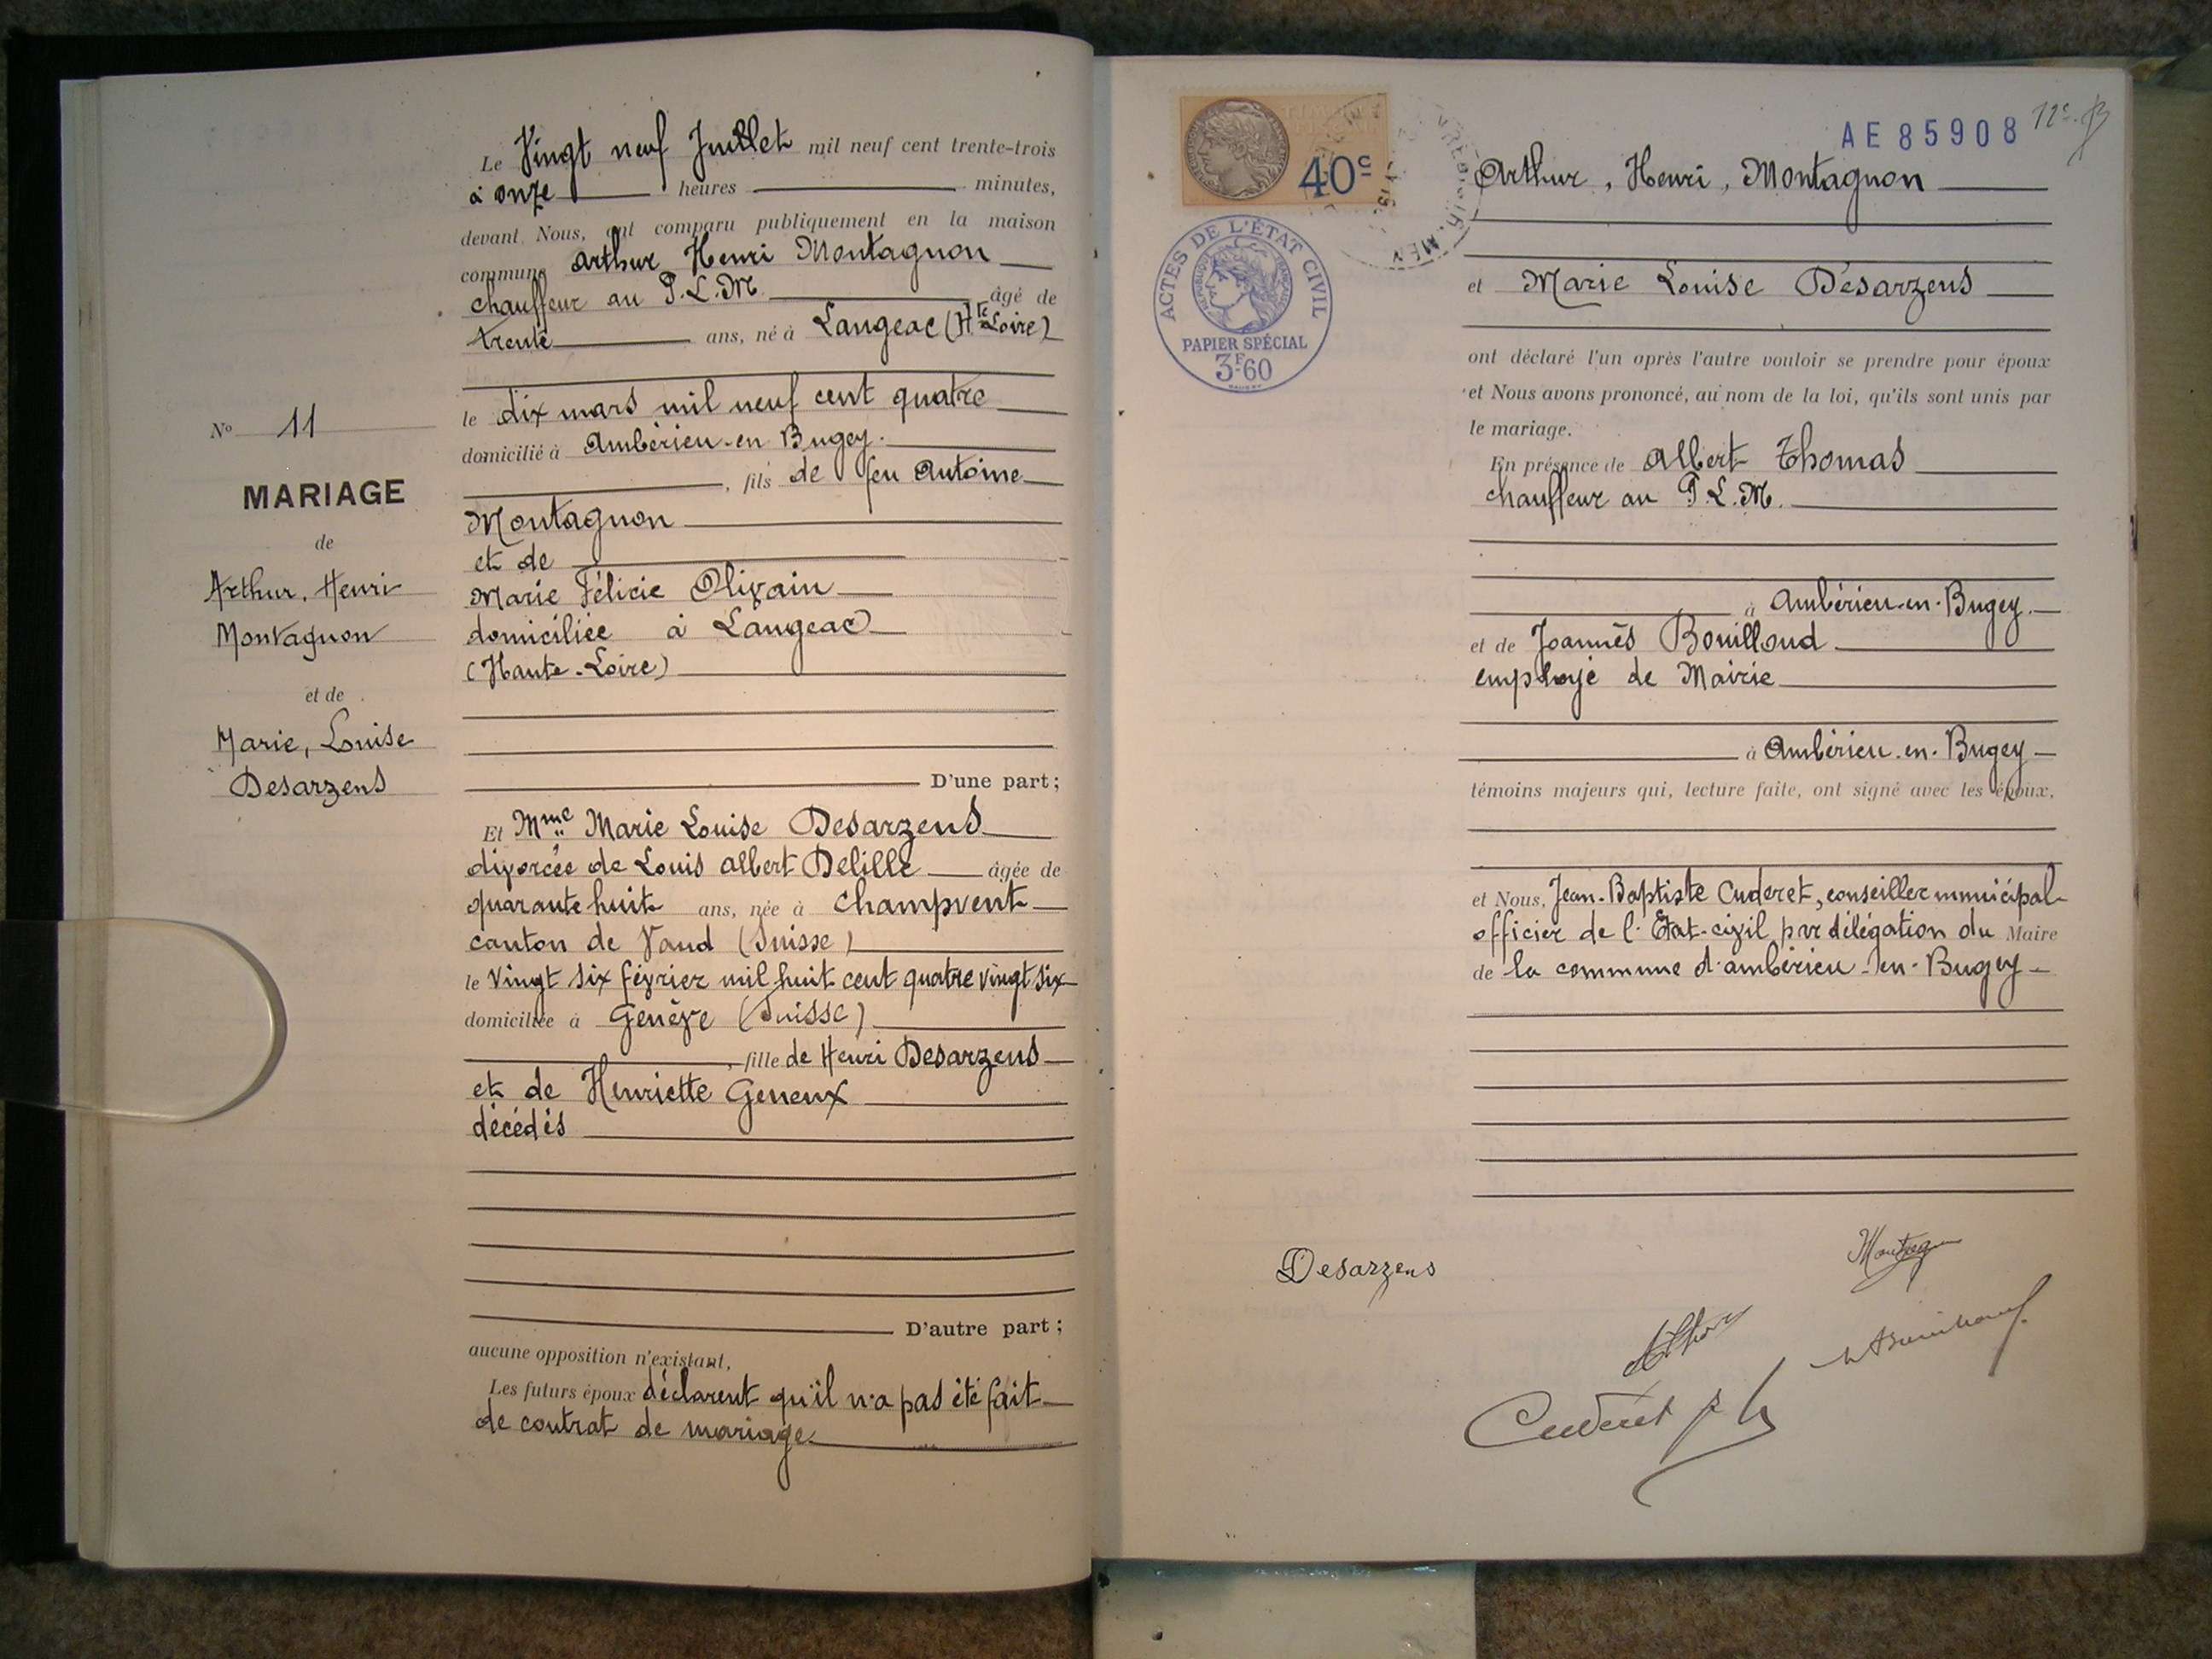 Le Vingt neuf Juillet mil neuf cent trente-trois
à onze heures minutes,
devant Nous, ont comparu publiquement en la maison
commune Arthur Henri Montagnon
chauffeur au P.L.M. âgé de
trente ans, né à Langeac (Hte Loire)
le dix mars mil neuf cent quatre
domicilié à Ambérieu-en Bugey.
, fils de feu Antoine
Montagnon
et de
Marie Félicie Olivain
domiciliée à Langeac
(Haute-Loire)
D'une part;
Et Mme Marie Louise Desarzens
divorcée de Louis Albert Delille âgée de
quarante huit ans, née à Champvent
canton de Vaud (Suisse)
le Vingt six février mil huit cent quatre vingt six
domiciliée à Genève (Suisse)
, fille de Henri Desarzens
et de Henriette Geneux
décédés
D'autre part;
aucune opposition n'existant,
Les futurs époux déclarent qu'il n'a pas été fait
de contrat de mariage.
No 11
MARIAGE
de
Arthur, Henri
Montagnon
et de
Marie, Louise
Desarzens
40c
AE 85908
ACTES DE L'ÉTAT CIVIL
RÉPUBLIQUE FRANÇAISE
PAPIER SPÉCIAL
3F60
Arthur, Henri, Montagnon
et Marie Louise Désarzens
ont déclaré l'un après l'autre vouloir se prendre pour époux
et Nous avons prononcé, au nom de la loi, qu'ils sont unis par
le mariage.
En présence de Albert Thomas
chauffeur au P.L.M.
à Ambérieu-en-Bugey.
et de Joannès Bouilloud
employé de Mairie
à Ambérieu-en-Bugey
témoins majeurs qui, lecture faite, ont signé avec les époux,
et Nous, Jean-Baptiste Cuderet, conseiller municipal
officier de l'Etat-civil par délégation du Maire
de la commune d'Ambérieu-en-Bugey
Desarzens
Cuderet